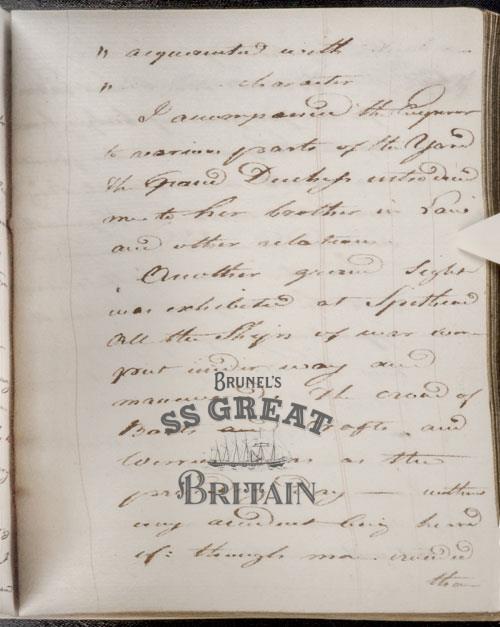 " acquainted with
" character
I accompanied the Emperor
to various parts of the Yard
the Grand Duchess introduced
me to her brother in Law
and other relations
Another grand Sight
was exhibited at Spithead
All the Ships of war were
put under way and
The crowd of
Boats and Crafts and
BRUNEL'S
SS GREAT
BRITAIN
as the
without
any accident being heard
of: though more crowded
than